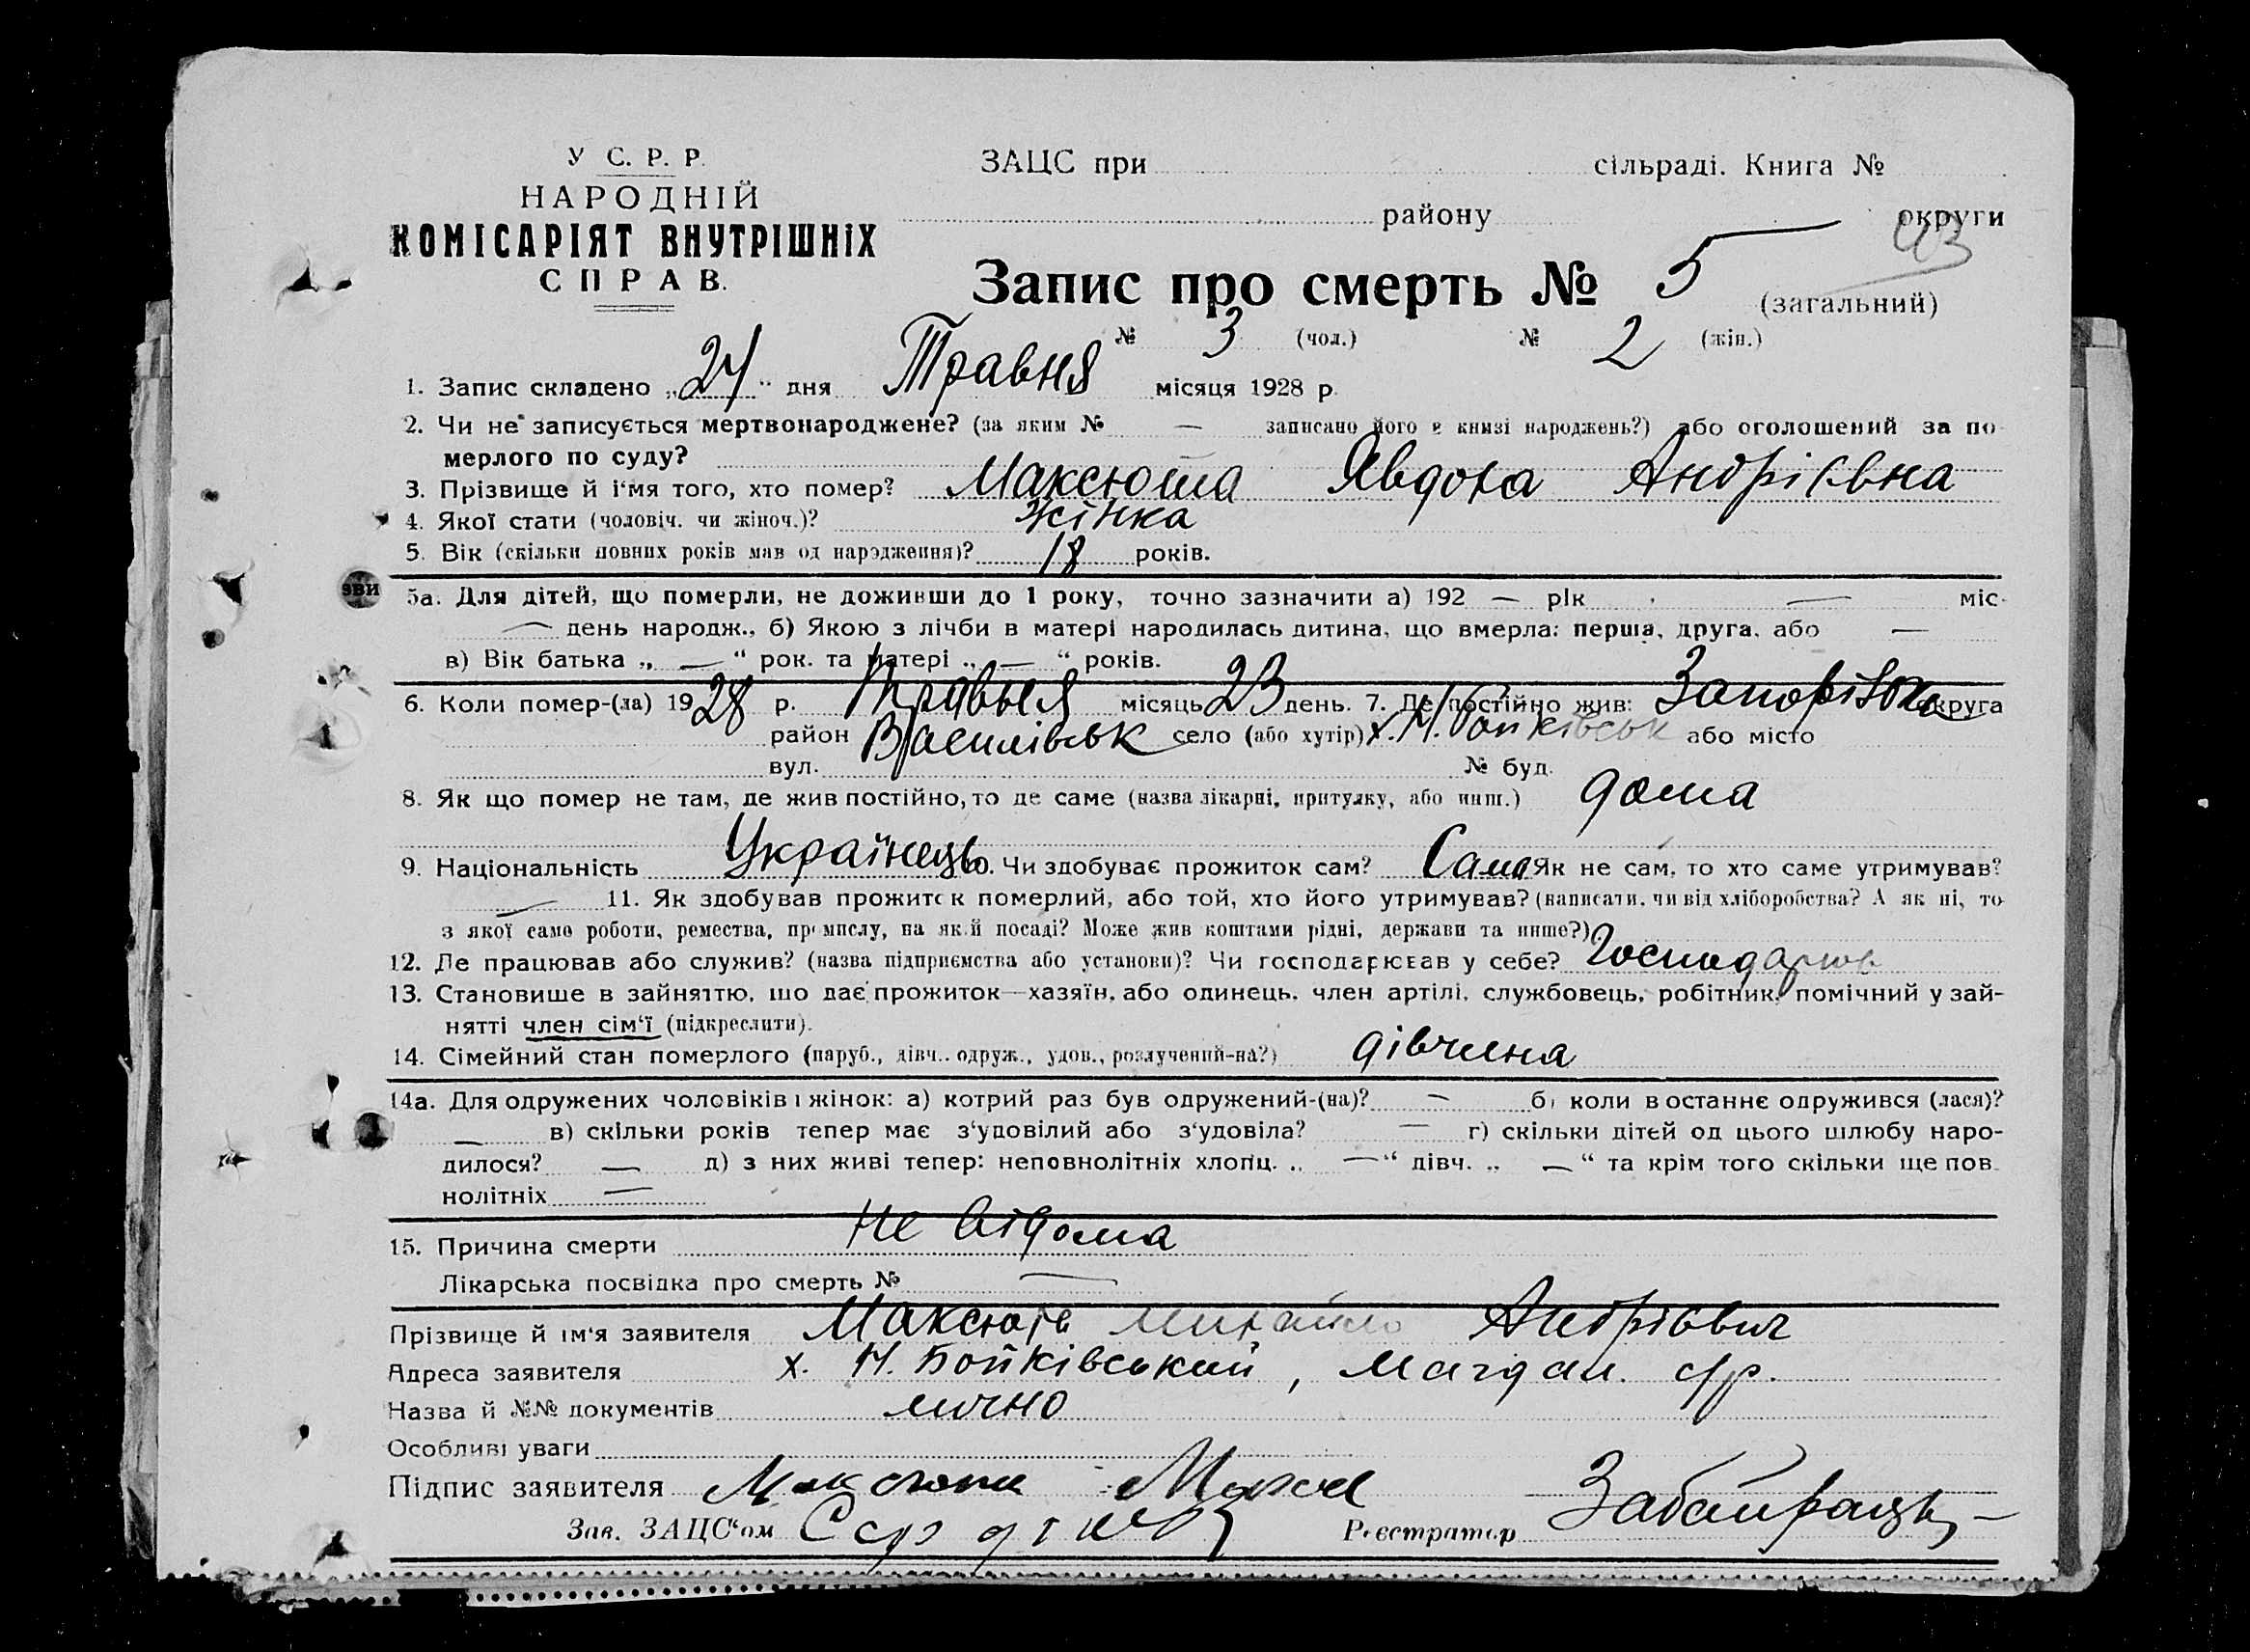 У С. Р. Р.
НАРОДНІЙ
КОМІСАРІЯТ ВНУТРІШНІХ
СПРАВ.
ЗАЦС при сільраді. Книга №
району округи
93
Запис про смерть № 5 (загальний)
№ 3 (чол.) № 2 (жін.)
1. Запис складено „24“ дня Травня місяця 1928 р.
2. Чи не записується мертвонароджене? (за яким № — записано його в книзі народжень?) або оголошений за по-
мерлого по суду?
3. Прізвище й і'мя того, хто помер? Максюта Явдоха Андріївна
4. Якої стати (чоловіч. чи жіноч.)? жінка
5. Вік (скільки повних років мав од народження)? 18 років.
5а. Для дітей, що померли, не доживши до 1 року, точно зазначити а) 192 — рік — міс.
— день народж., б) Якою з лічби в матері народилась дитина, що вмерла: перша, друга, або —
в) Вік батька „ — “ рок. та матері „ — “ років.
6. Коли помер-(ла) 1928 р. Травня місяць 23 день. 7. Де постійно жив: Запоріжжя округа
район Василівськ село (або хутір) х. Н. Бойківськ або місто
вул. № буд.
8. Як що помер не там, де жив постійно, то де саме (назва лікарні, притулку, або инш.) дома
9. Національність Українець 10. Чи здобуває прожиток сам? Сама Як не сам, то хто саме утримував?
— 11. Як здобував прожиток померлий, або той, хто його утримував? (написати, чи від хліборобства? А як ні, то
з якої саме роботи, ремества, промислу, на якій посаді? Може жив коштами рідні, держави та инше?)
12. Де працював або служив? (назва підприємства або установи)? Чи господарював у себе? Господарюв
13. Становище в зайняттю, що дає прожиток—хазяїн, або одинець, член артілі, службовець, робітник, помічний у зай-
нятті член сім'ї (підкреслити).
14. Сімейний стан померлого (паруб., дівч., одруж., удов., розлучений-на?) дівчина
14а. Для одружених чоловіків і жінок: а) котрий раз був одружений-(на)? — б) коли в останнє одружився (лася)?
— в) скільки років тепер має з'удовілий або з'удовіла? — г) скільки дітей од цього шлюбу наро-
дилося? — д) з них живі тепер: неповнолітніх хлопц. „ — “ дівч. „ — “ та крім того скільки ще пов-
нолітніх —
15. Причина смерти не відома
Лікарська посвідка про смерть № —
Прізвище й ім'я заявителя Максюта Михайло Андрієвич
Адреса заявителя х. Н. Бойківський, Магдал. с/р.
Назва й №№ документів лично
Особливі уваги
Підпис заявителя Максюта
Зав. ЗАЦС'ом Реєстратор